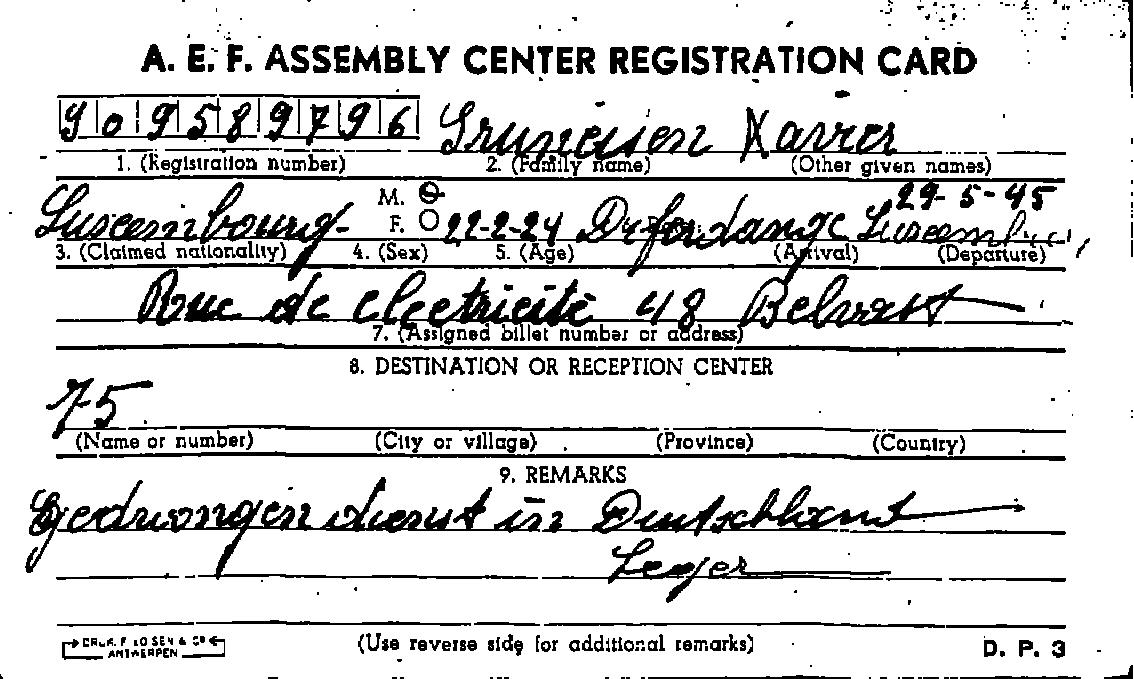 A. E. F. ASSEMBLY CENTER REGISTRATION CARD
909589796 Gruneisen Xavier
1. (Registration number) 2. (Family name) (Other given names)
29-5-45
M.
Luxembourg F. 22-2-24 Differdange
3. (Claimed nationality) 4. (Sex) 5. (Age) (Arrival) (Departure)
Rue de electricité 48 Belvast
7. (Assigned billet number or address)
8. DESTINATION OR RECEPTION CENTER
75
(Name or number) (City or village) (Province) (Country)
9. REMARKS
Gedwongen dienst in Deutschland
Leger
(Use reverse side for additional remarks) D. P. 3
ANTWERPEN